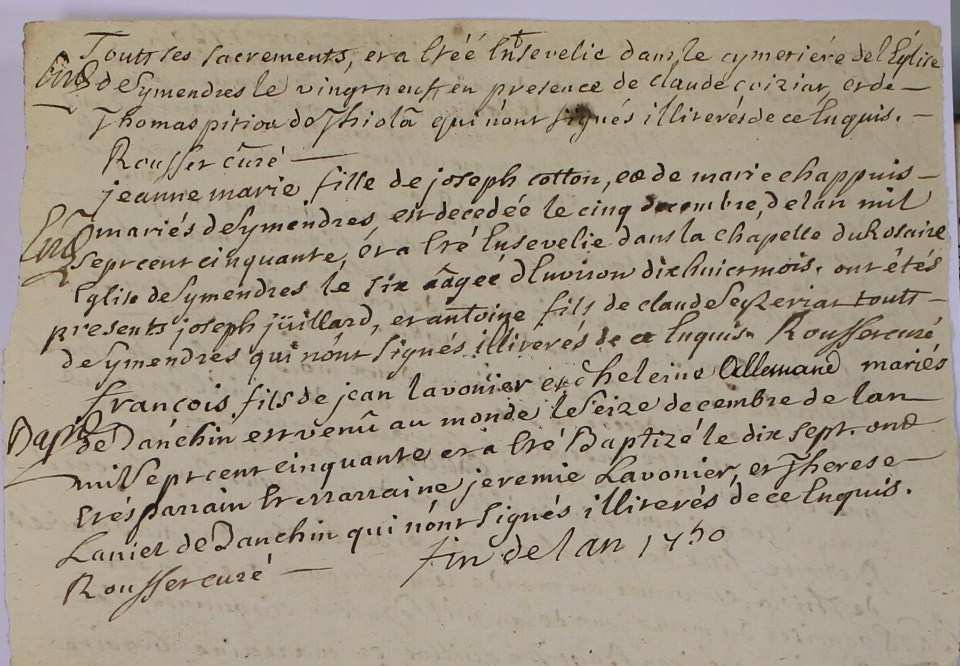 Toutts ses sacrements, et a étéé Ensevelie dans le cymetiére de l'Église
Ent de Symendres le vingt neuf en presence de claude coiziat, et de
Thomas pitiou de Thiola qui n'ont signés illiterés de ce Enquis.
Rousset curé
jeanne marie fille de joseph cotton, et de marie chappuis
mariés de Symendres, est decedée le cinq decembre, de lan mil
Ent sept cent cinquante, et a été Ensevelie dans la chapelle du Rosaire
Eglise de Symendres le six aâgée d'Environ dix huict mois. ont étés
presents joseph jüillard, et antoine fils de claude toutts
de Symendres qui n'ont signés illiterés de ce Enquis Rousset curé
françois fils de jean lavonier et heleine Allemand mariés
Bapt de Danchin est venû au monde le seize decembre de lan
mil sept cent cinquante et a été Baptizé le dix sept. ont
Etés parrain et marraine jeremie Lavonier, et Therese
Laniel de Danchin qui n'ont signés illiterés de ce Enquis.
Rousset curé fin de lan 1750